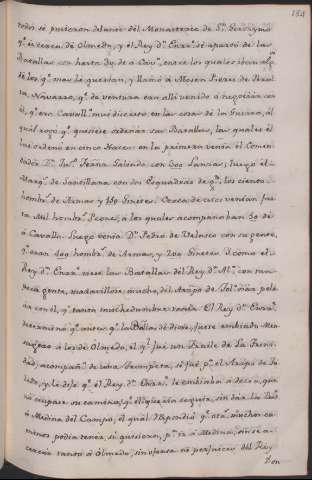 184
todos se pusieron delante del Monasterio de Sn. Geronymo
qe. es cerca de Olmedo, y el Rey Dn. Enrrqe. se apartó de las
Batallas con hasta 50 de à Cavo. entre los quales iban
de los qe. mas de guerra sabian, y llamó à Mosen Pierres de Peral
ta Navarro, qe. de ventura era alli venido à negociar con
él, qe. era Cavallo. muy discreto en las cosas de la Guerra, al
qual rogó qe. quisiese ordenar sus Batallas, las quales él
le ordenó en cinco Haces: en la primera venia el Comen
dador Dn. Juo. Fernz. Galindo con 600 Lanzas; luego el
Marqs. de Santillana con dos Esquadras de gte. los ciento
hombres de Armas y 150 Ginetes. Cerca de estos venian
mil hombrs. Peones, à los quales acompañaban 50 de
à Cavallo. Luego venia Dn. Pedro de Velasco con su gente,
qe. eran 400 hombrs. de Armas, y 200 Ginetes. È como el
Rey Dn. Enrrqe. viese las Batallas del Rey Dn. Alo. con tan
poca gente, maravillose mucho, del Arzpo. de Toldo. osar pelea
àr con él, qe. tanta muchedumbre trahia. El Rey Dn. Enrrqe.
determinó qe. antes qe. la Batalla se diese, fuese embiado Men
sagero à los de Olmedo, el ql. fué un Frayle de la Trini
dad, acompañdo. de una Trompeta, é fué pa. el Arzpo. de To
ledo, y le dijo qe. el Rey Dn. Enrrqe. le embiaba à decir, que
no ocupase su camino, qe. él queria seguir, sin dár la Bata
à Medina del Campo, el qual respondió qe. otros muchos ca
minos podia tener, si quisieran, pa. ir à Medina, sin se a-
cercar tanto à Olmedo, sin ofensa ni perjuicio del Rey
Don